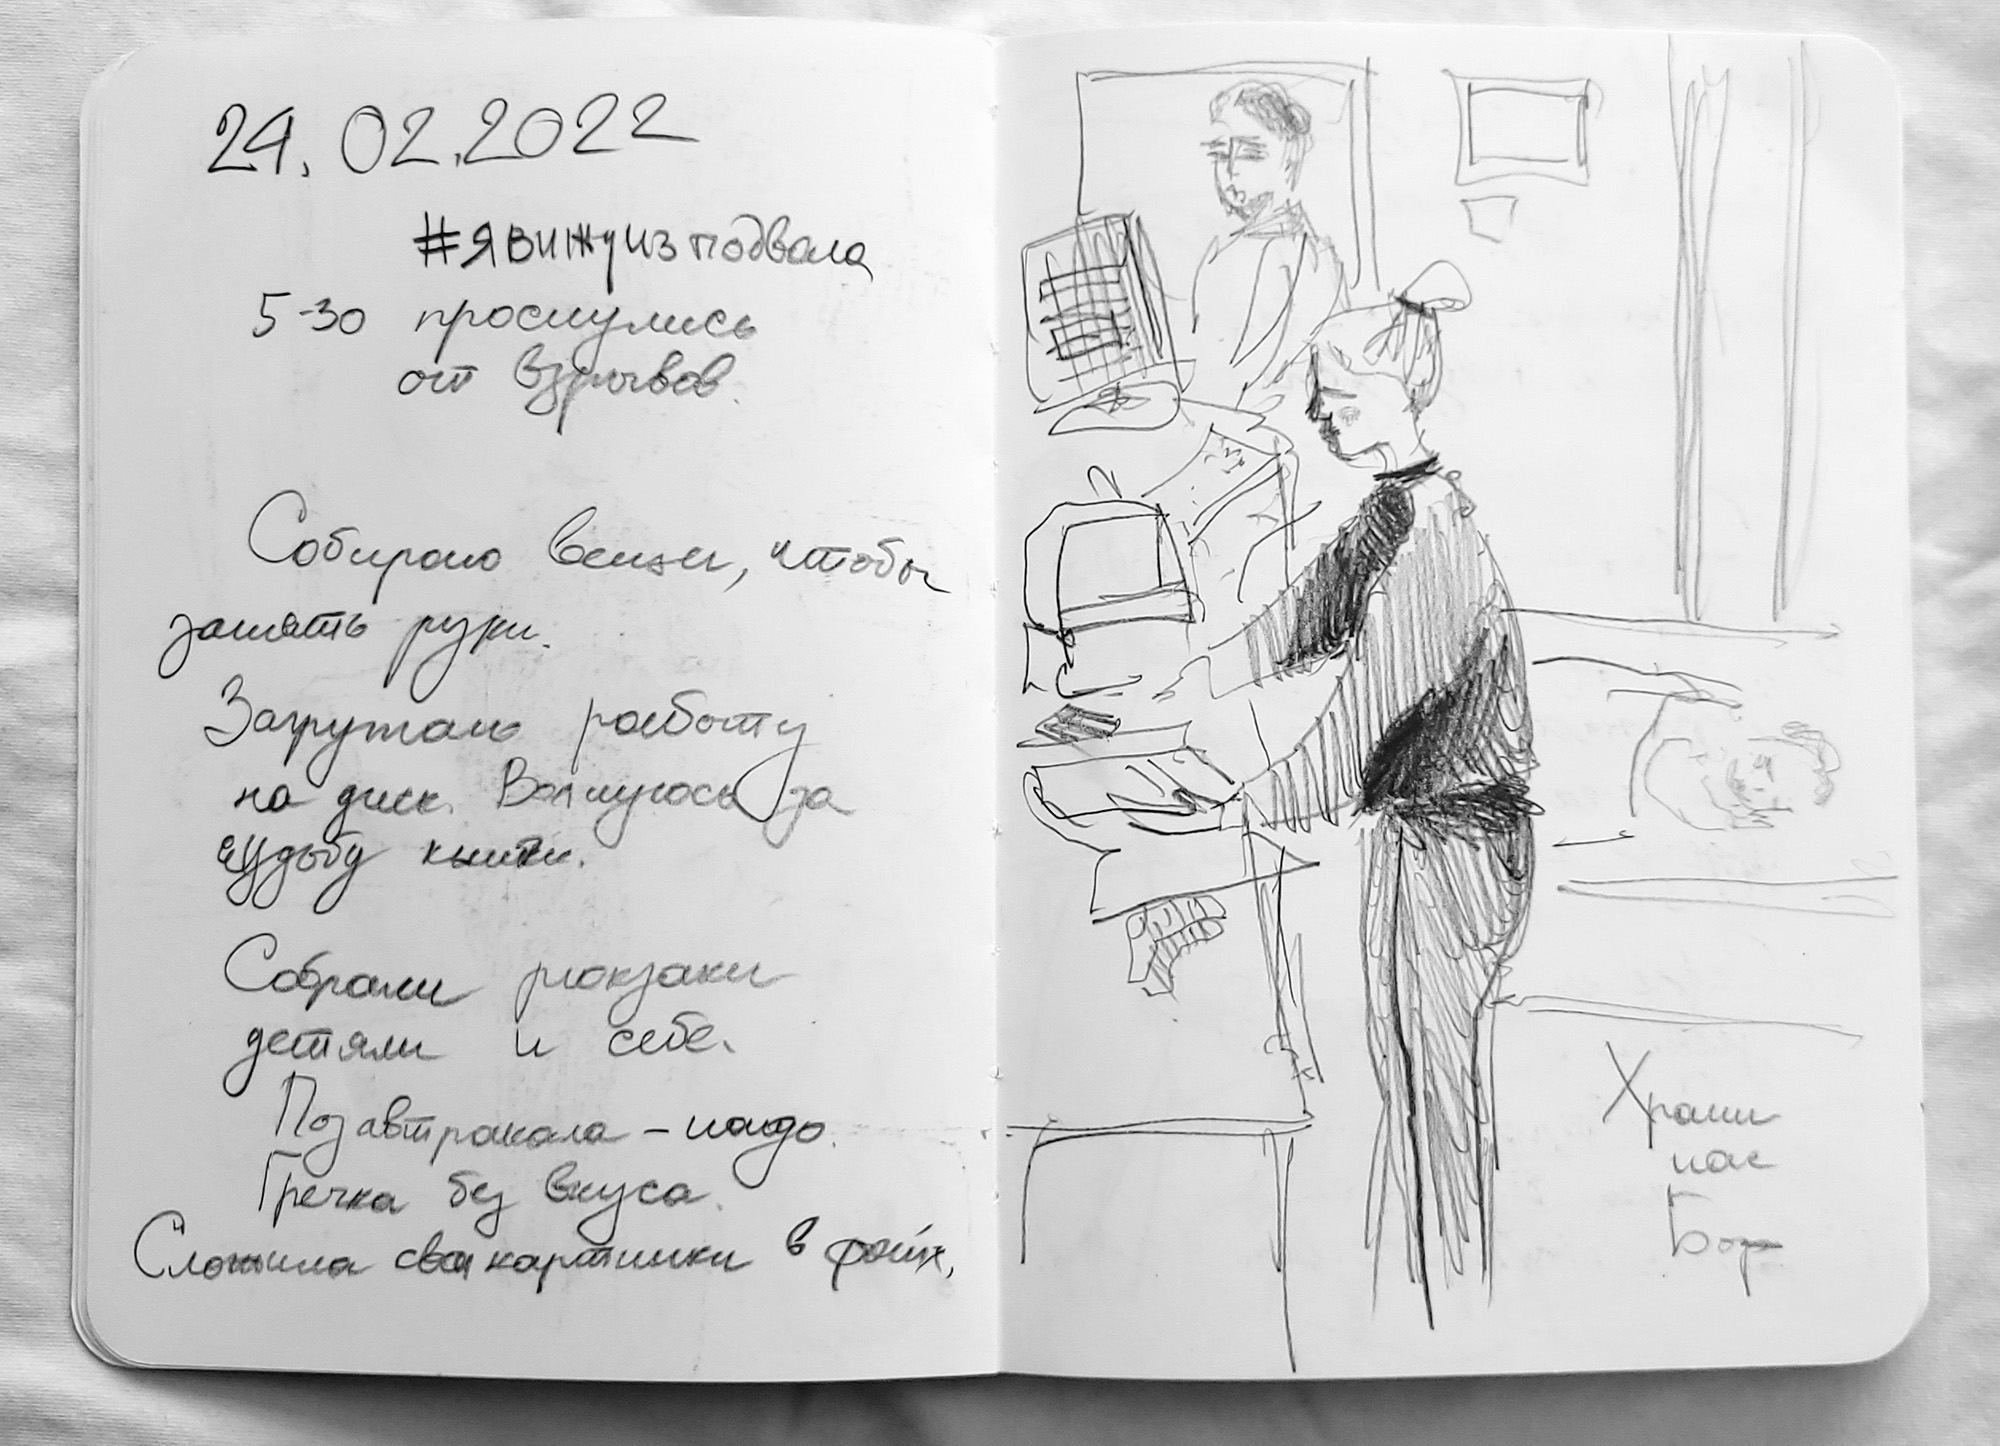 24.02.2022
#явижуизподвала
5-30 проснулись
от взрывов.
Собираю вещи, чтобы
занять руки.
Загружаю работу
на диск. Волнуюсь за
судьбу книги.
Собрали рюкзаки
детям и себе.
Позавтракала – надо.
Гречка без вкуса.
Сложила свои картинки в файл,
Храни
нас
Бог